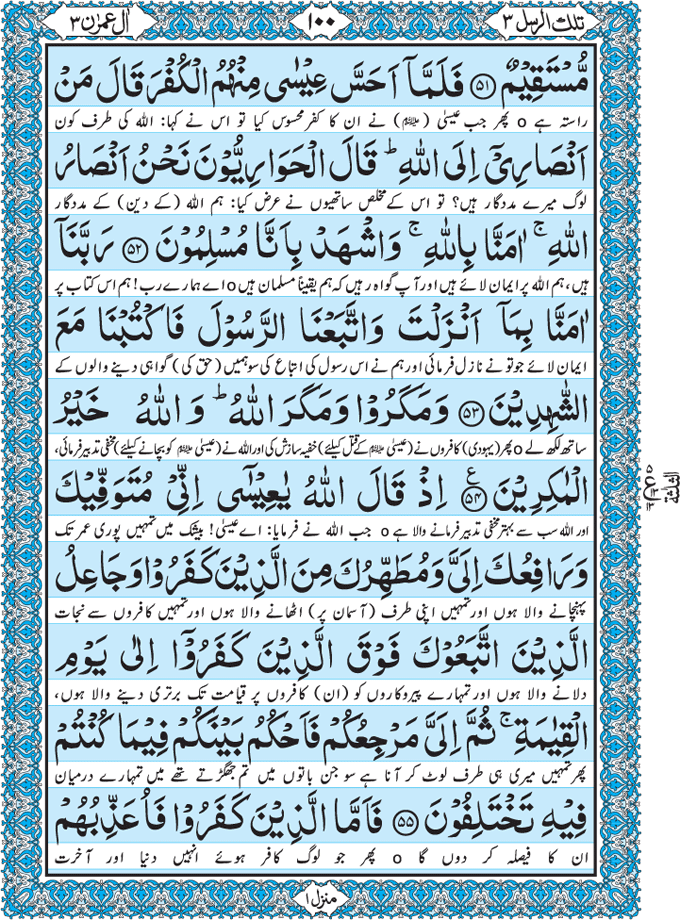 تلك الرسل ٣
١٠٠
اٰل عمرٰن ٣
مُّسْتَقِيْمٌ ﴿۵۱﴾ فَلَمَّاۤ اَحَسَّ عِيْسٰى مِنْهُمُ الْكُفْرَ قَالَ مَنْ
راستہ ہے o پھر جب عیسٰی (علیہ السلام) نے ان کا کفر محسوس کیا تو اس نے کہا: اللہ کی طرف کون
اَنْصَارِىْۤ اِلَى اللّٰهِ ؕ قَالَ الْحَوَارِيُّوْنَ نَحْنُ اَنْصَارُ
لوگ میرے مددگار ہیں؟ تو اس کے مخلص ساتھیوں نے عرض کیا: ہم اللہ (کے دین) کے مددگار
اللّٰهِ ۚ اٰمَنَّا بِاللّٰهِ ۚ وَاشْهَدْ بِاَنَّا مُسْلِمُوْنَ ﴿۵۲﴾ رَبَّنَاۤ
ہیں، ہم اللہ پر ایمان لائے ہیں اور آپ گواہ رہیں کہ ہم یقیناً مسلمان ہیں o اے ہمارے رب! ہم اس کتاب پر
اٰمَنَّا بِمَاۤ اَنْزَلْتَ وَاتَّبَعْنَا الرَّسُوْلَ فَاكْتُبْنَا مَعَ
ایمان لائے جو تو نے نازل فرمائی اور ہم نے اس رسول کی اتباع کی سو ہمیں (حق کی) گواہی دینے والوں کے
الشّٰهِدِيْنَ ﴿۵۳﴾ وَمَكَرُوْا وَمَكَرَ اللّٰهُ ؕ وَاللّٰهُ خَيْرُ
ساتھ لکھ لے o پھر (یہودی) کافروں نے (عیسٰی علیہ السلام کے قتل کیلئے) خفیہ سازش کی اور اللہ نے (عیسٰی علیہ السلام کو بچانے کیلئے) مخفی تدبیر فرمائی،
الْمٰكِرِيْنَ ﴿۵۴﴾ ع اِذْ قَالَ اللّٰهُ يٰعِيْسٰۤى اِنِّىْ مُتَوَفِّيْكَ
اور اللہ سب سے بہتر مخفی تدبیر فرمانے والا ہے o جب اللہ نے فرمایا: اے عیسٰی! بیشک میں تمہیں پوری عمر تک
وَرَافِعُكَ اِلَىَّ وَمُطَهِّرُكَ مِنَ الَّذِيْنَ كَفَرُوْا وَجَاعِلُ
پہنچانے والا ہوں اور تمہیں اپنی طرف (آسمان پر) اٹھانے والا ہوں اور تمہیں کافروں سے نجات
الَّذِيْنَ اتَّبَعُوْكَ فَوْقَ الَّذِيْنَ كَفَرُوْۤا اِلٰى يَوْمِ
دلانے والا ہوں اور تمہارے پیروکاروں کو (ان) کافروں پر قیامت تک برتری دینے والا ہوں،
الْقِيٰمَةِ ۚ ثُمَّ اِلَىَّ مَرْجِعُكُمْ فَاَحْكُمُ بَيْنَكُمْ فِيْمَا كُنْتُمْ
پھر تمہیں میری ہی طرف لوٹ کر آنا ہے سو جن باتوں میں تم جھگڑتے تھے میں تمہارے درمیان
فِيْهِ تَخْتَلِفُوْنَ ﴿۵۵﴾ فَاَمَّا الَّذِيْنَ كَفَرُوْا فَاُعَذِّبُهُمْ
ان کا فیصلہ کر دوں گا o پھر جو لوگ کافر ہوئے انہیں دنیا اور آخرت
منزل ١
الثلثة